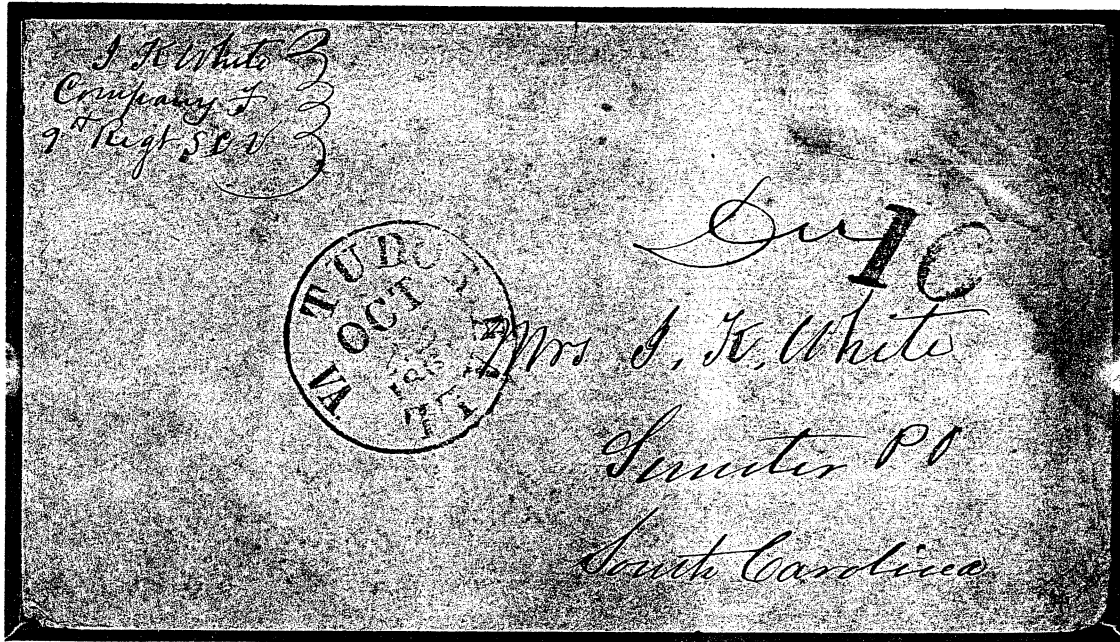 J K White
Company F
9th Regt S C V
Due 10
TUDOR HALL VA
OCT
186
Mrs J. K. White
Sumter P O
South Carolina